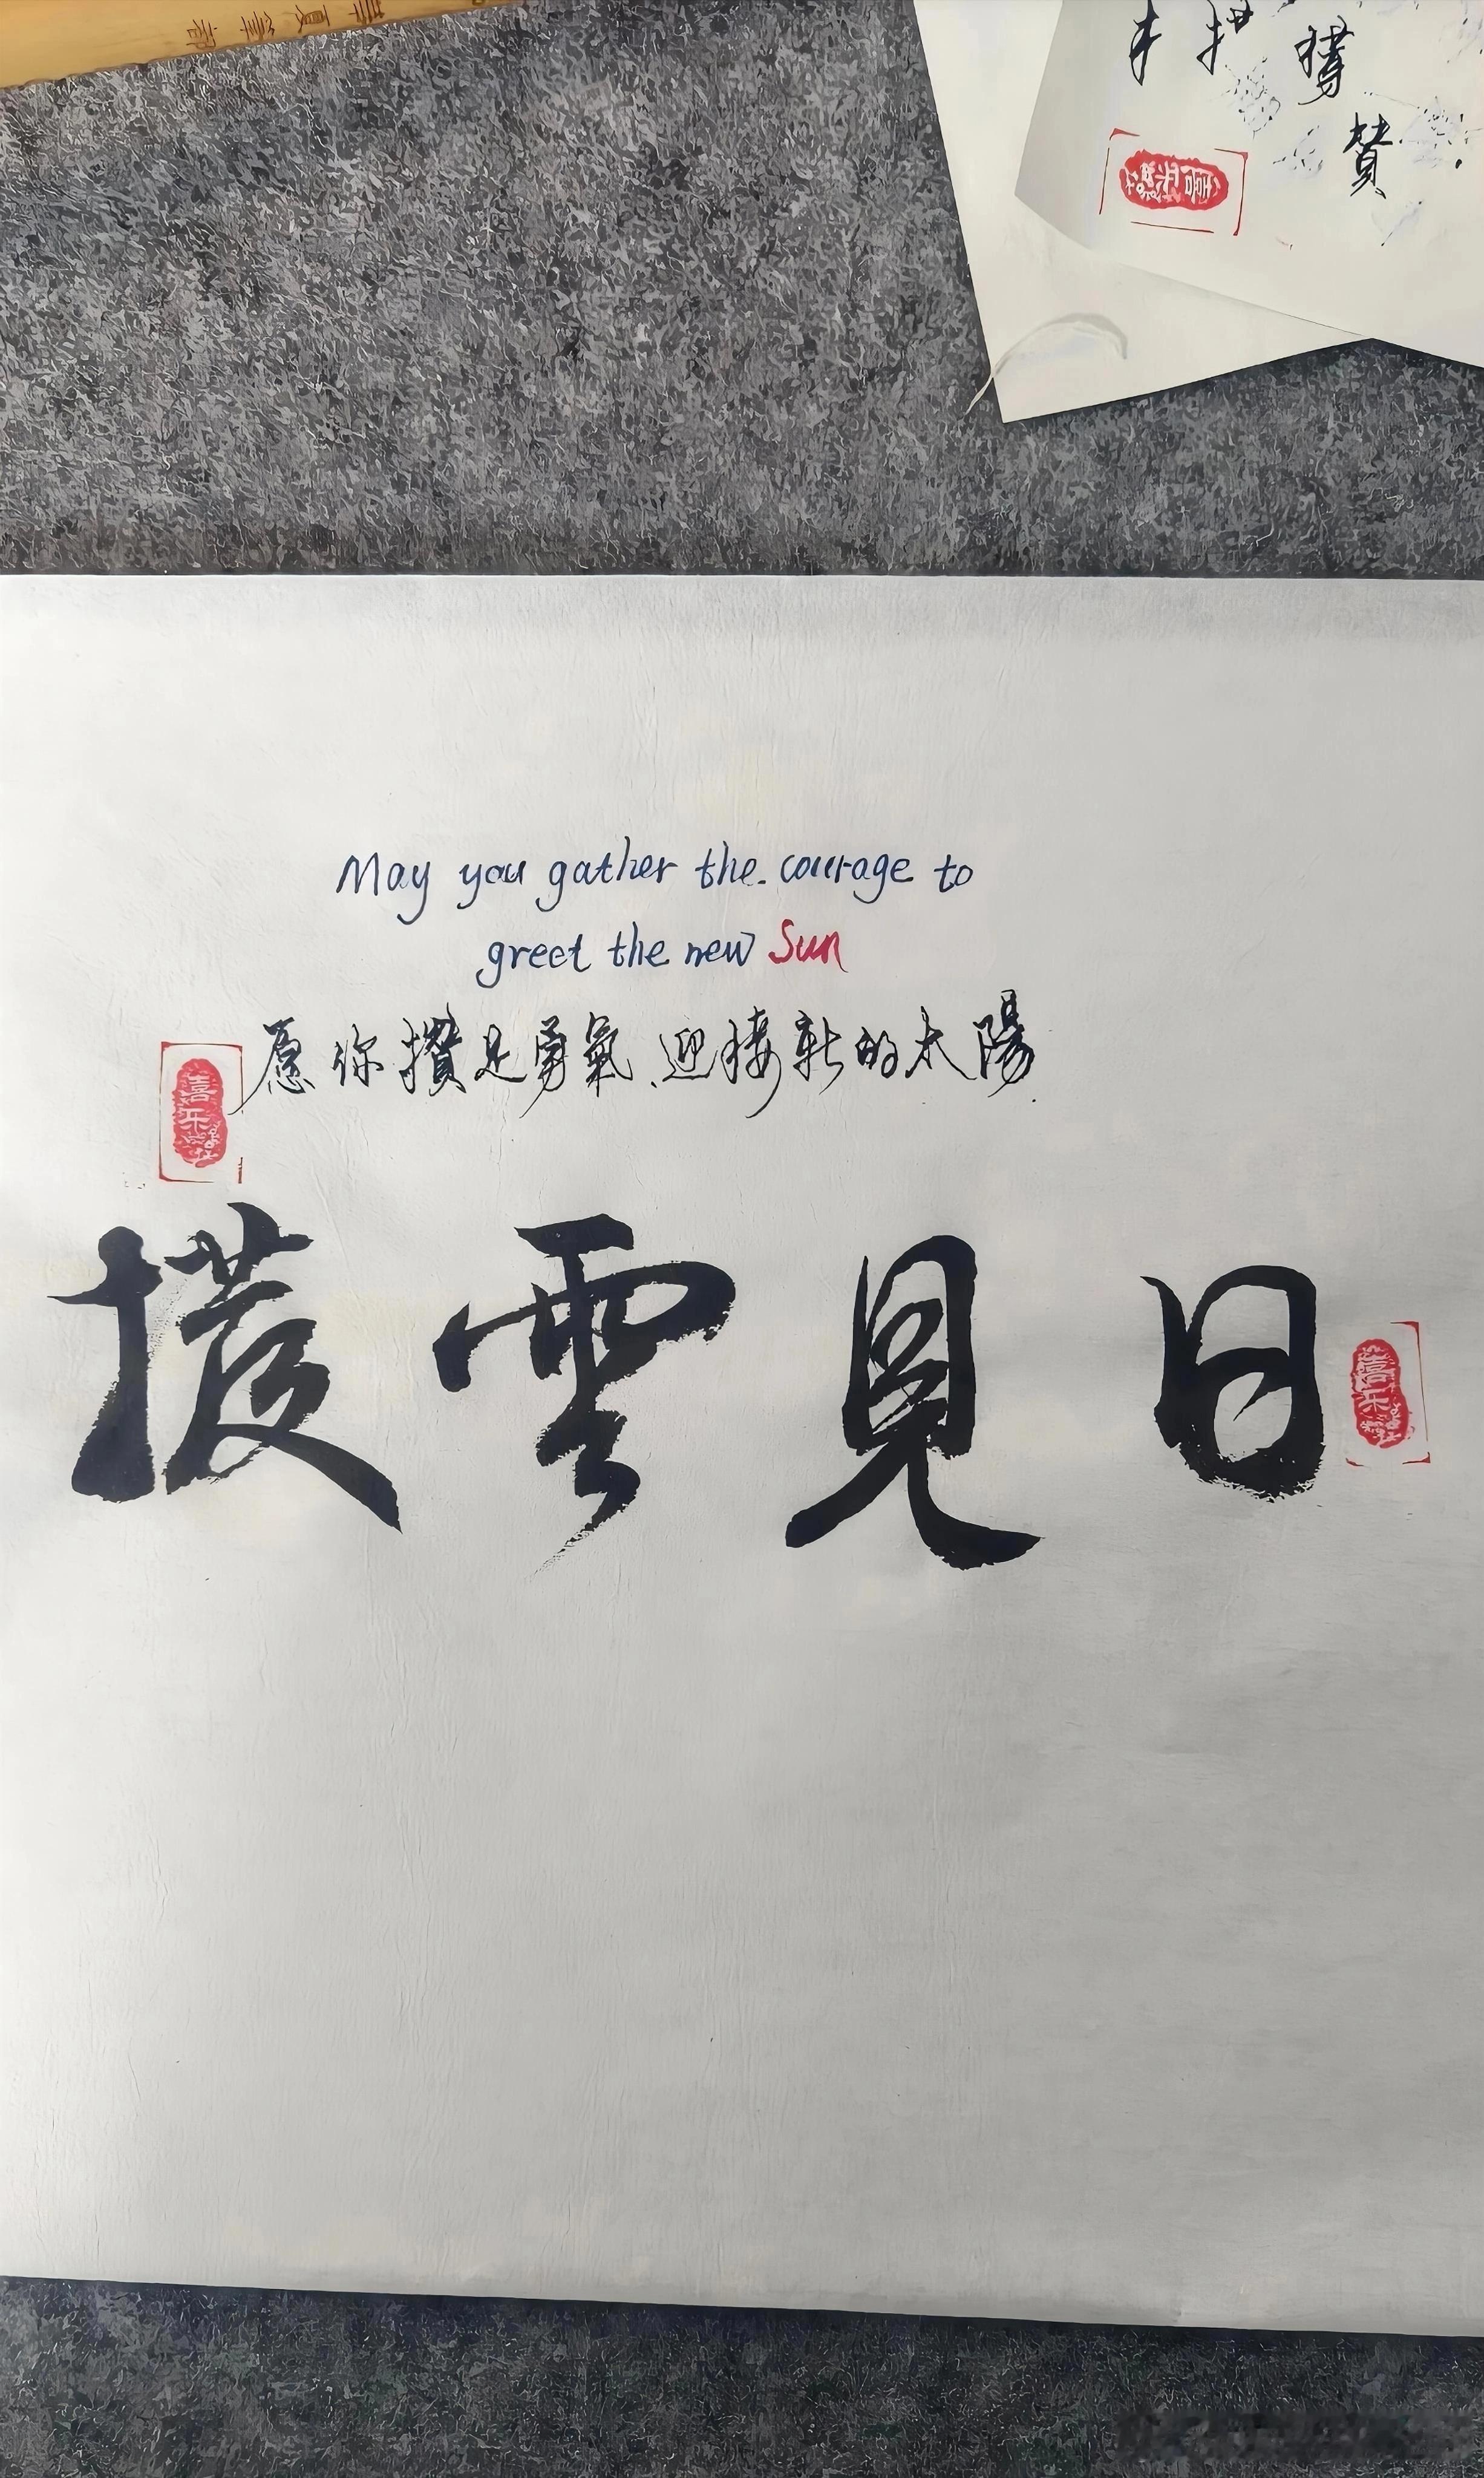 華夏筆部
攢
贊
May you gather the courage to
greet the new Sun
愿你攢足勇氣、迎接新的太陽.
喜乐
撥雲見日
喜乐